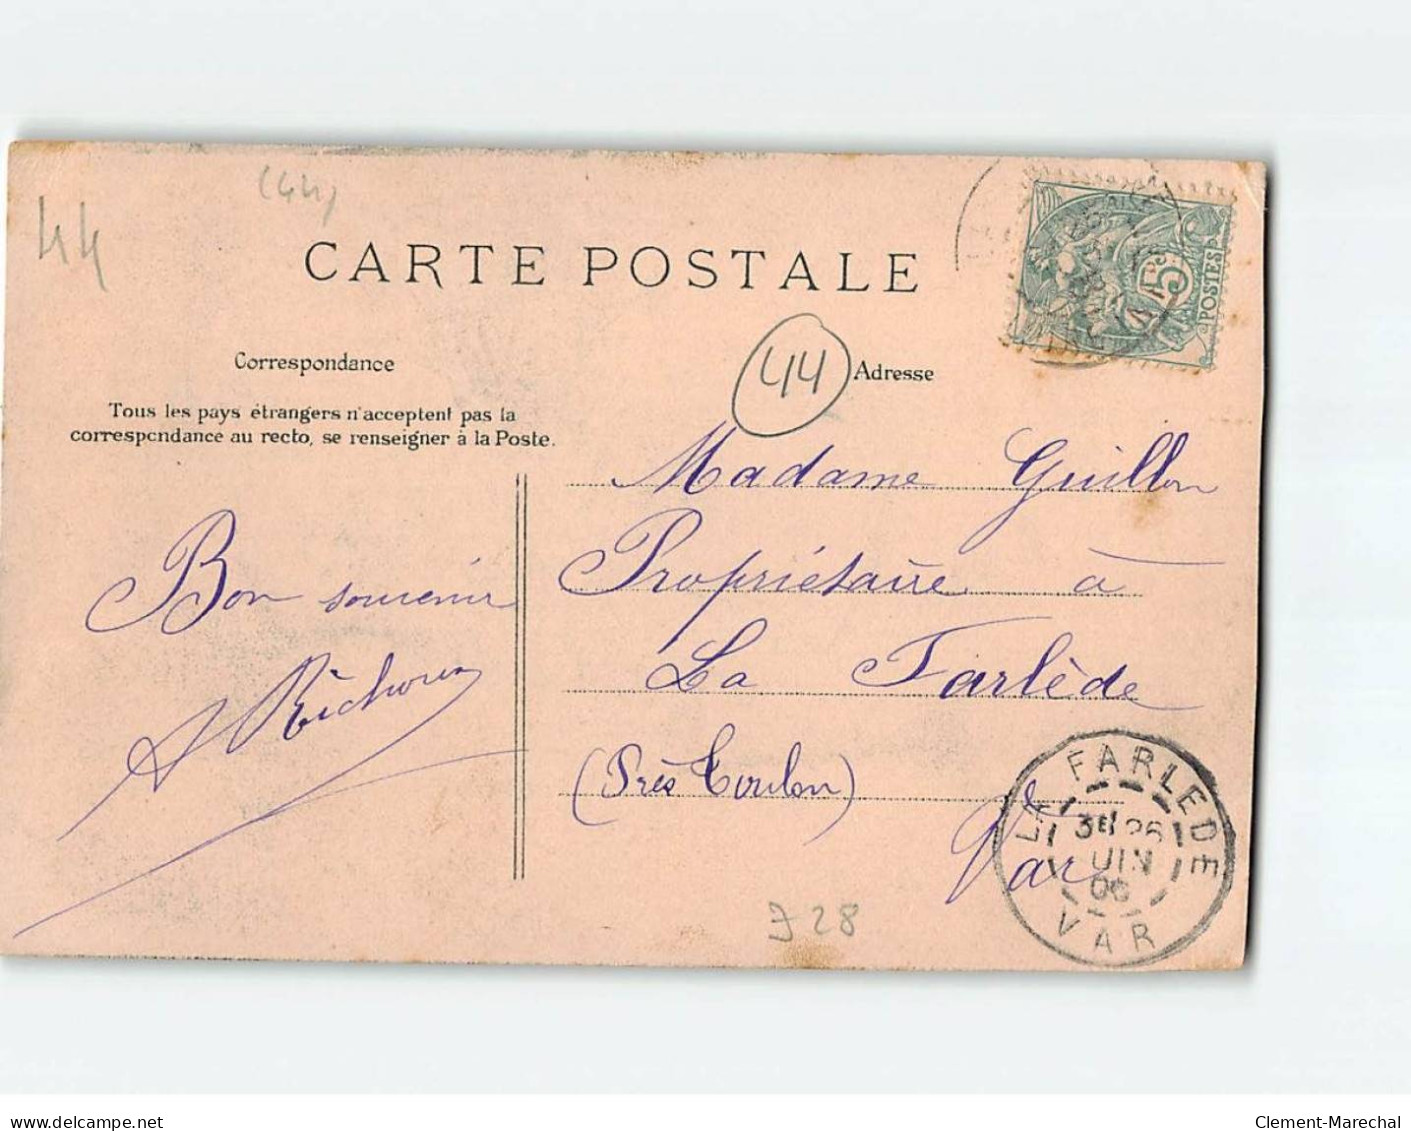 (44)
44
CARTE POSTALE
5
POSTES
Correspondance
44
Adresse
Tous les pays étrangers n'acceptent pas la
correspondance au recto, se renseigner à la Poste.
Madame Guillon
Propriétaire à
La Farlède
(Près Toulon)
Var
Bon souvenir
LA FARLEDE
26
JUIN
06
VAR
28
delcampe.net
Clement-Marechal